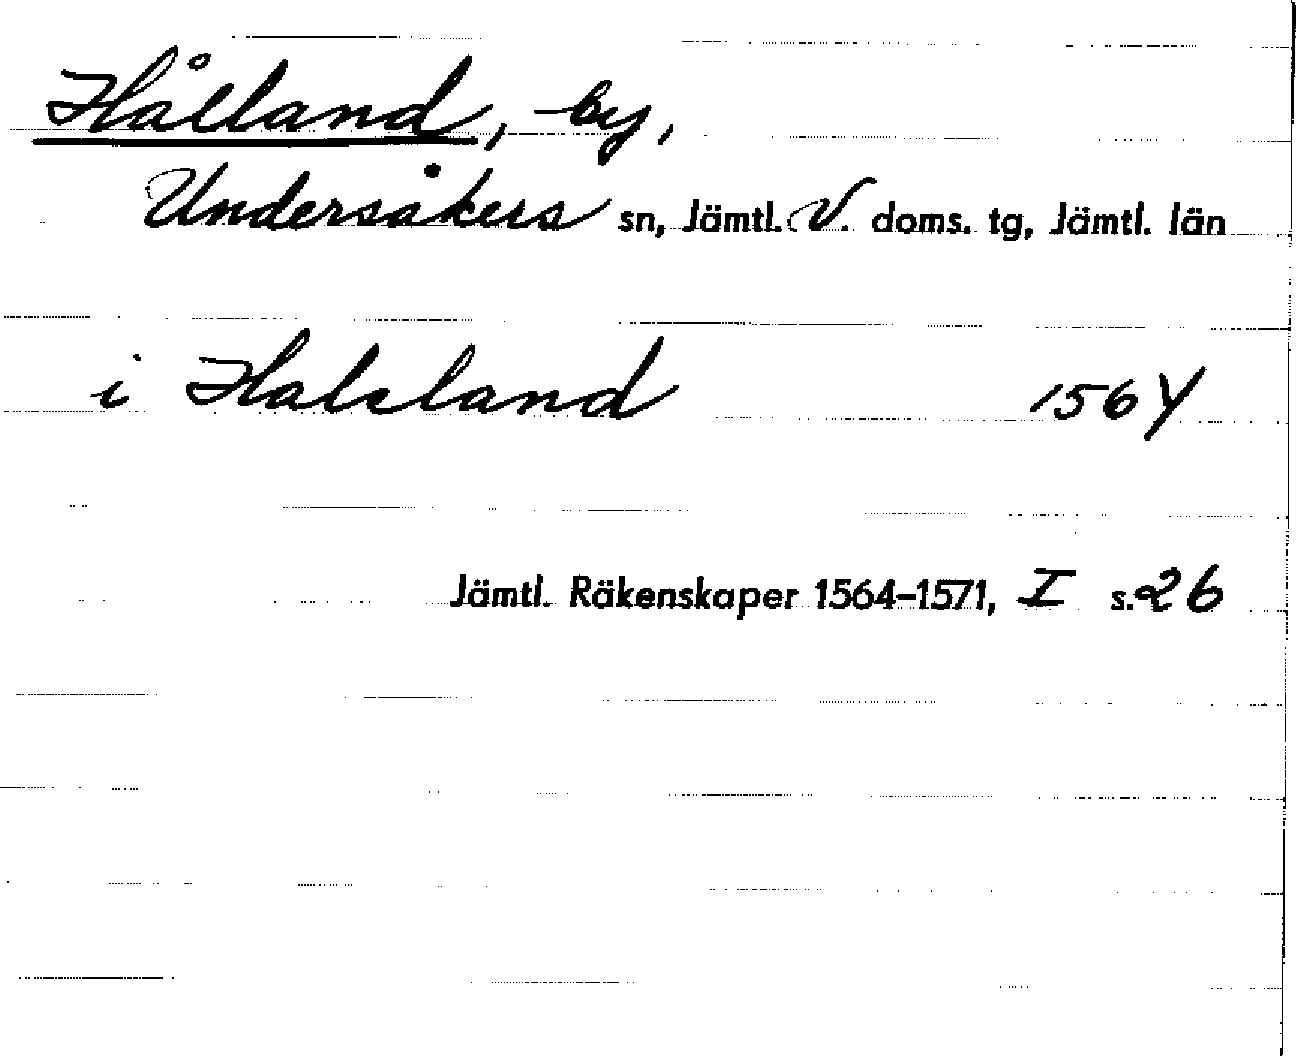 Hålland, by,
Undersåkers sn, Jämtl. V. doms. tg, Jämtl. län
i Haleland 1564
Jämtl. Räkenskaper 1564-1571, I s. 26